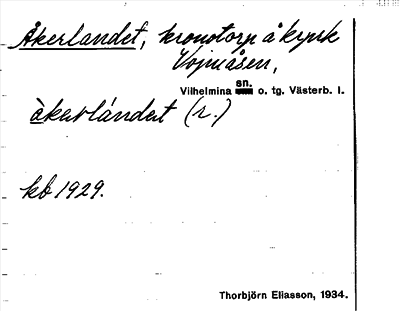 Åkerlandet, kronotorp å krpk
Vojmåsen,
sn.
Vilhelmina o. tg. Västerb. l.
àkerlándet (r.)
kb 1929.
Thorbjörn Eliasson, 1934.